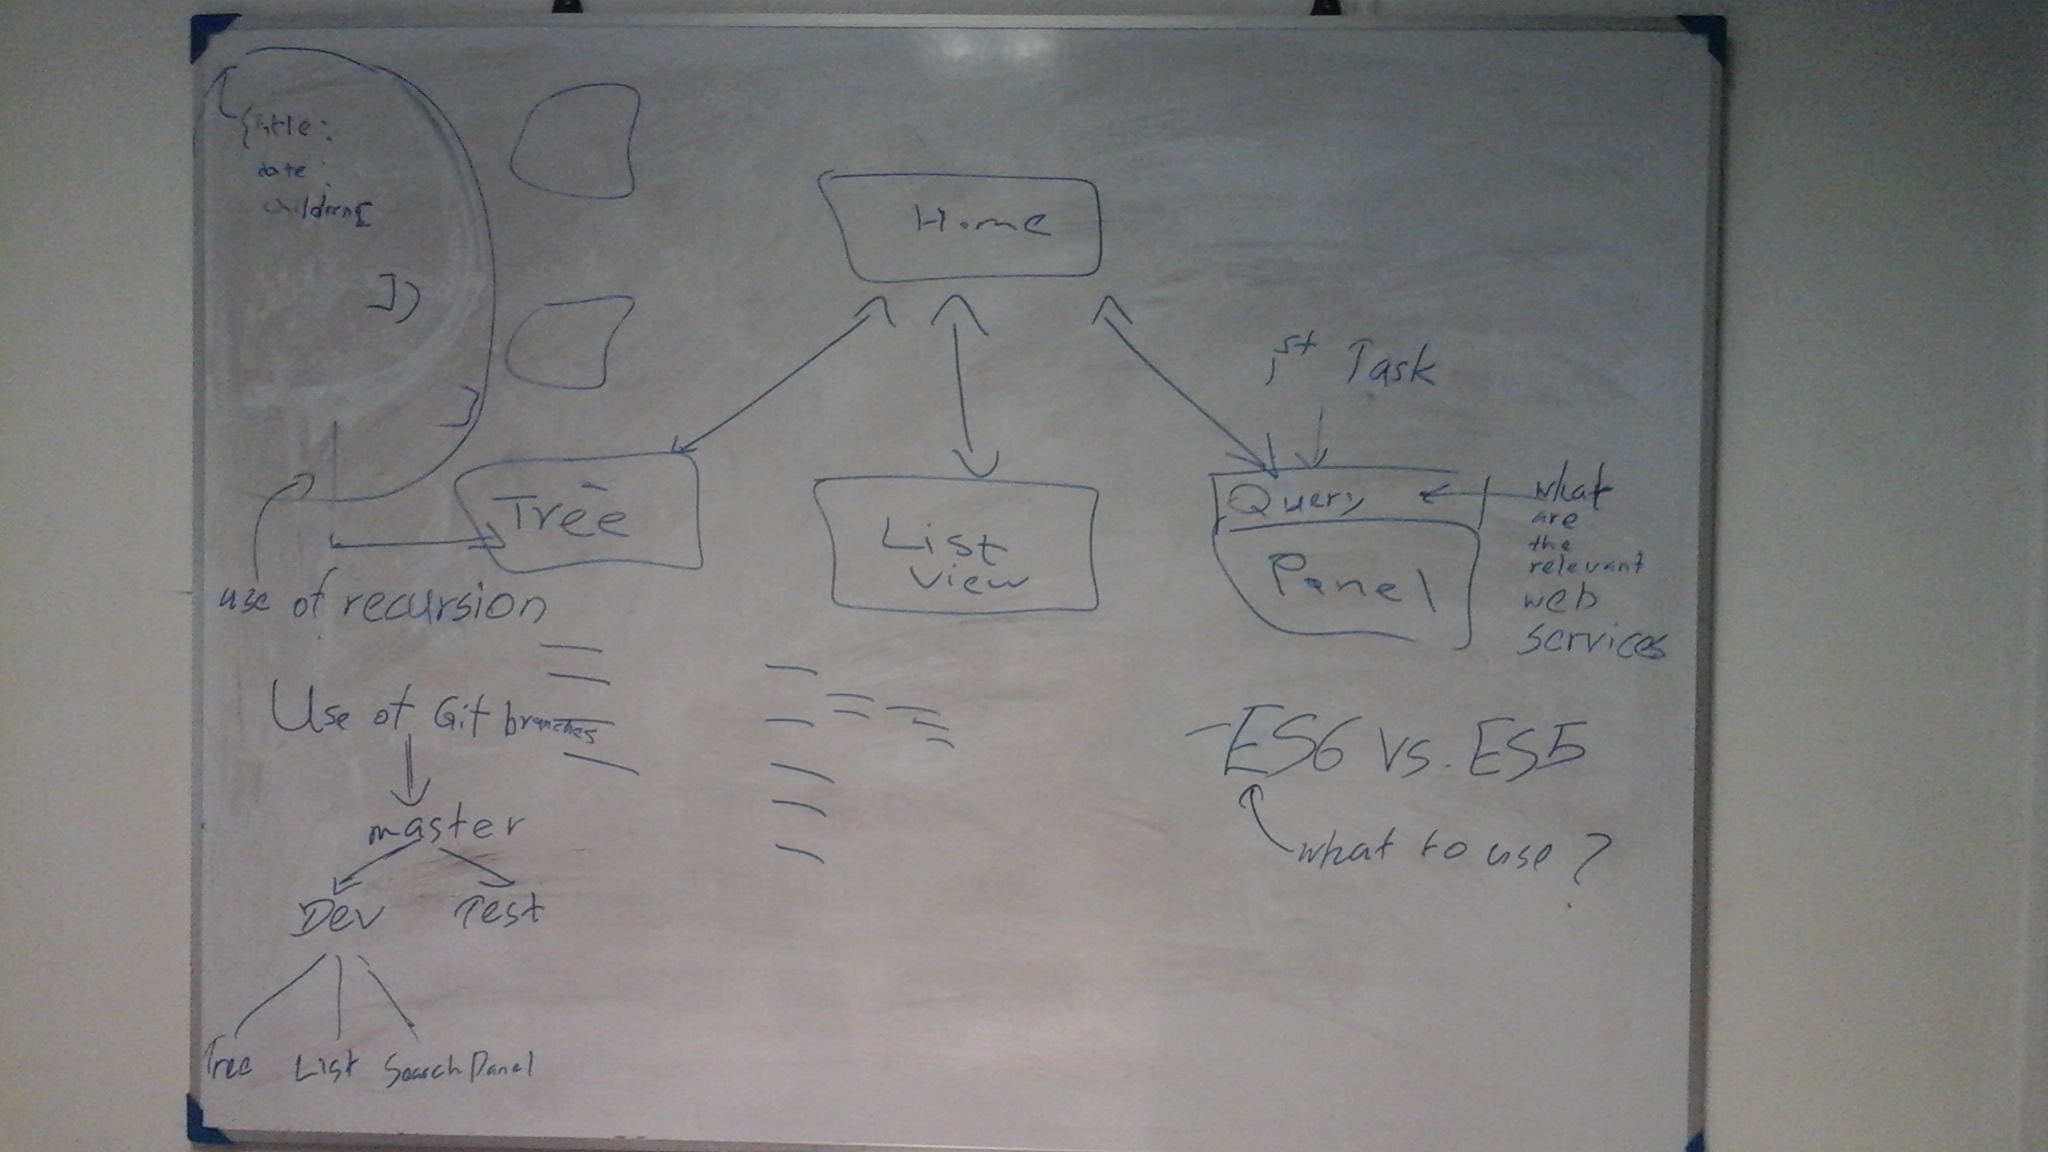 {title:
date
children[
])
}
Home
1st Task
Tree
List
view
Query
Panel
what
are
the
relevant
web
services
use of recursion
Use of Git branches
master
Dev Test
Tree List Search Panel
-ES6 vs. ES5
what to use?